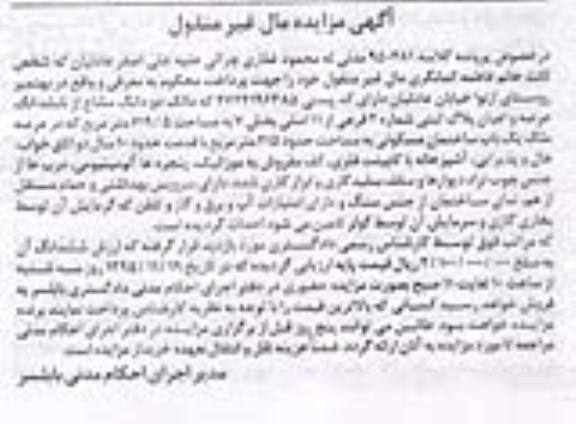 آگهی مزایده مال غیر منقول
در خصوص پرونده کلاسه ۹۵-۲۸۱ مدنی له محمود غفاری چراتی علیه علی اصغر عادلیان که شخص
ثالث خانم فاطمه مال غیر منقول خود را جهت پرداخت محکوم به معرفی و واقع در بهنمیر
روستای خیابان عادلیان دارای کد پستی که مالک دو دانگ مشاع از ششدانگ
عرصه و اعیان پلاک ثبتی شماره ۳ فرعی از ۱۱ اصلی بخش ۷ به مساحت متر مربع که در عرصه
ملک یک باب ساختمان مسکونی به مساحت حدود متر مربع با قدمت حدود ۱۰ سال دو اتاق خواب
هال و پذیرایی، آشپزخانه با کابینت فلزی، کف مفروش به موزائیک، پنجره ها آلومینیومی، درب ها از
جنس چوب دیوارها و سقف سفیدکاری و ابزار کاری شده، دارای سرویس بهداشتی و حمام مستقل
از هم، نمای ساختمان از جنس سنگ و دارای امتیازات آب و برق و گاز و تلفن که گرمایش آن توسط
بخاری گازی و سرمایش آن توسط کولر تامین می شود احداث گردیده است.
که مراتب فوق توسط کارشناس رسمی دادگستری مورد بازدید قرار گرفته که ارزش ششدانگ آن
به مبلغ ریال قیمت پایه ارزیابی گردیده که در تاریخ ۱۳۹۵/۱۱/۱۹ روز سه شنبه
از ساعت ۱۰ لغایت ۱۱ صبح بصورت مزایده حضوری در دفتر اجرای احکام مدنی دادگستری بابلسر به
فروش خواهد رسید کسانی که بالاترین قیمت را با توجه به نظریه کارشناس پرداخت نمایند برنده
مزایده خواهند بود. طالبین می توانند پنج روز قبل از برگزاری مزایده در دفتر اجرای احکام مدنی
مراجعه تا مورد مزایده به آنان ارائه گردد. ضمنا هزینه نقل و انتقال بعهده خریدار مزایده است.
مدیر اجرای احکام مدنی بابلسر